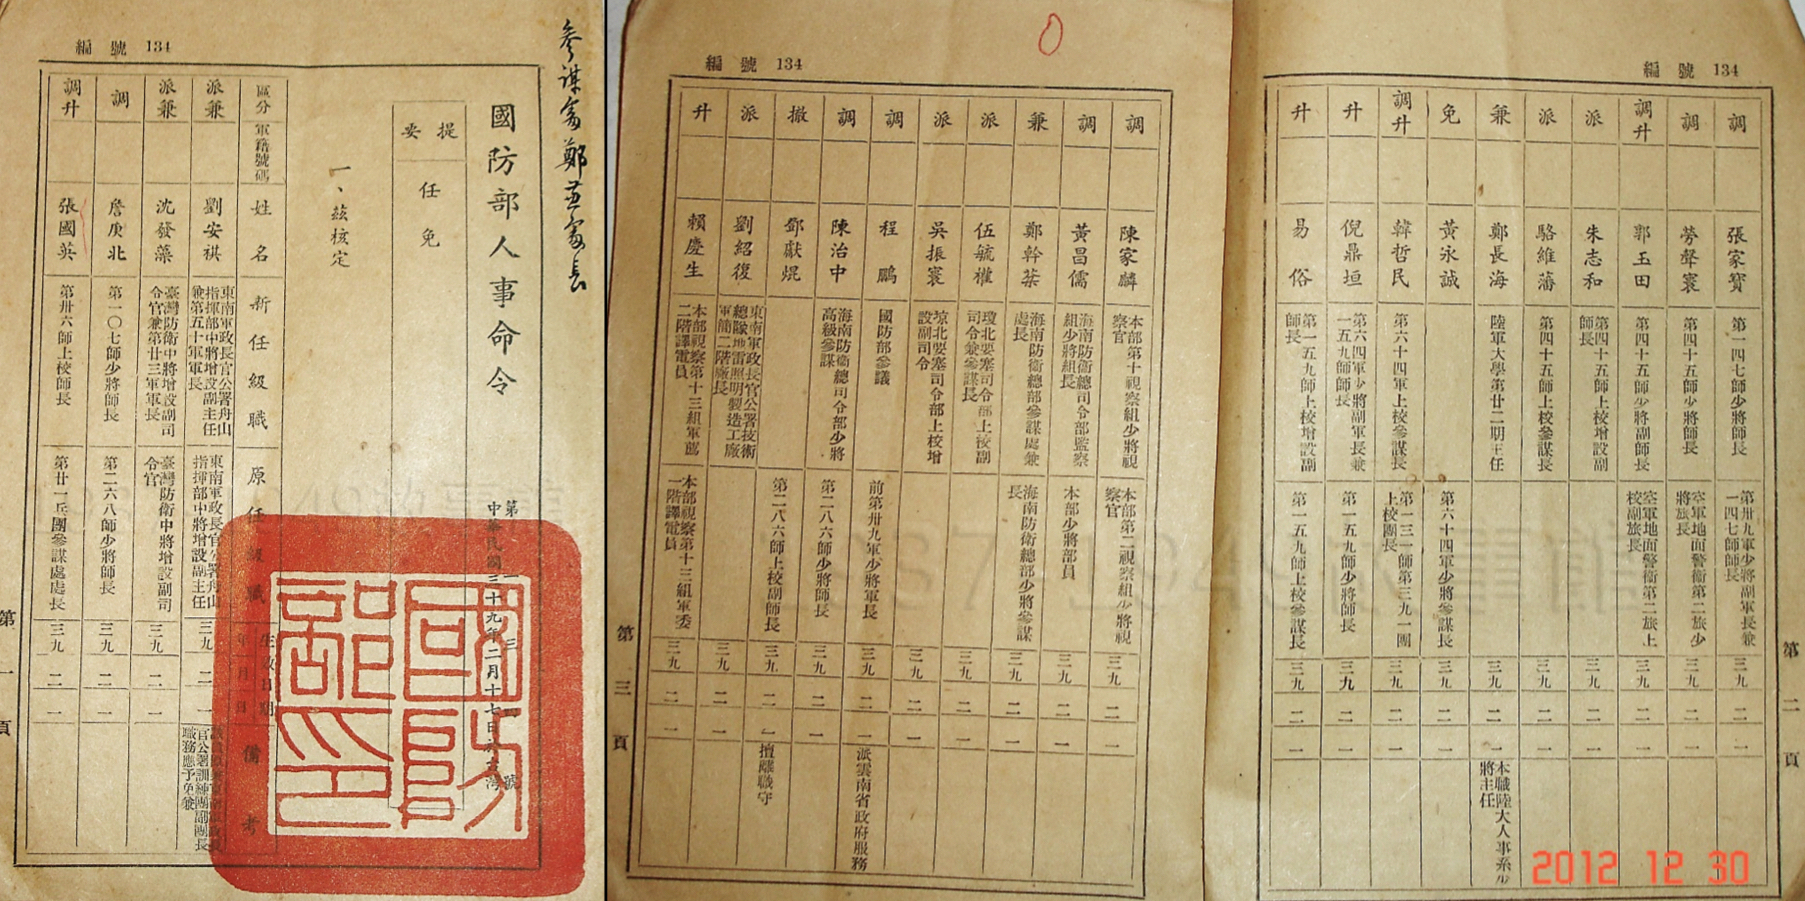 參謀處鄭兼處長
國防部人事命令
中華民國三十九年二月十七日於台灣
提要
任免
一、茲核定
編號 134
區分 軍籍號碼 姓名 新任級職 原任級職 生效日期 年月日 備考
派兼 劉安祺 東南軍政長官公署舟山指揮部中將增設副主任兼第五十軍軍長 東南軍政長官公署舟山指揮部中將增設副主任 三九 二 一
官公署訓練團副團長職務應予免兼
派兼 沈發藻 臺灣防衛中將增設副司令官兼第廿三軍軍長 臺灣防衛中將增設副司令官 三九 二 一
調 詹庚北 第一〇七師少將師長 第二六八師少將師長 三九 二 一
調升 張國英 第卅六師上校師長 第廿一兵團參謀處處長 三九 二 一
第一頁
編號 134
調 張家寶 第一四七師少將師長 第卅九軍少將副軍長兼一四七師師長 三九 二 一
調 勞聲寰 第四十五師少將師長 空軍地面警衛第二旅少將旅長 三九 二 一
調升 郭玉田 第四十五師少將副師長 空軍地面警衛第二旅上校副旅長 三九 二 一
派 朱志和 第四十五師上校增設副師長 三九 二 一
派 駱維藩 第四十五師上校參謀長 三九 二 一
兼 鄭長海 陸軍大學第廿二期主任 三九 二 一 本職陸大人事系少將主任
免 黃永誠 第六十四軍少將參謀長 三九 二 一
調升 韓哲民 第六十四軍上校參謀長 第一三一師第三九一團上校團長 三九 二 一
升 倪鼎垣 第六四軍少將副軍長兼一五九師師長 第一五九師少將師長 三九 二 一
升 易俗 第一五九師上校增設副師長 第一五九師上校參謀長 三九 二 一
第二頁
編號 134
調 陳家麟 本部第十視察組少將視察官 本部第二視察組少將視察官 三九 二 一
調 黃昌儒 海南防衛總司令部監察組少將組長 本部少將部員 三九 二 一
兼 鄭幹棻 海南防衛總部參謀處兼處長 海南防衛總部少將參謀長 三九 二 一
派 伍毓權 瓊北要塞司令部上校副司令兼參謀長 三九 二 一
派 吳振寰 瓊北要塞司令部上校增設副司令 三九 二 一
調 程鵬 國防部參議 前第卅九軍少將軍長 三九 二 一 派雲南省政府服務
調 陳治中 海南防衛總司令部少將高級參謀 第二八六師少將師長 三九 二 一
撤 鄧獻焜 第二八六師上校副師長 三九 二 一 擅離職守
派 劉紹復 東南軍政長官公署技術總隊地雷照明製造工廠軍簡二階廠長 三九 二 一
升 賴慶生 本部視察第十三組軍薦二階譯電員 本部視察第十三組軍委一階譯電員 三九 二 一
第三頁
國防部印
2012 12 30